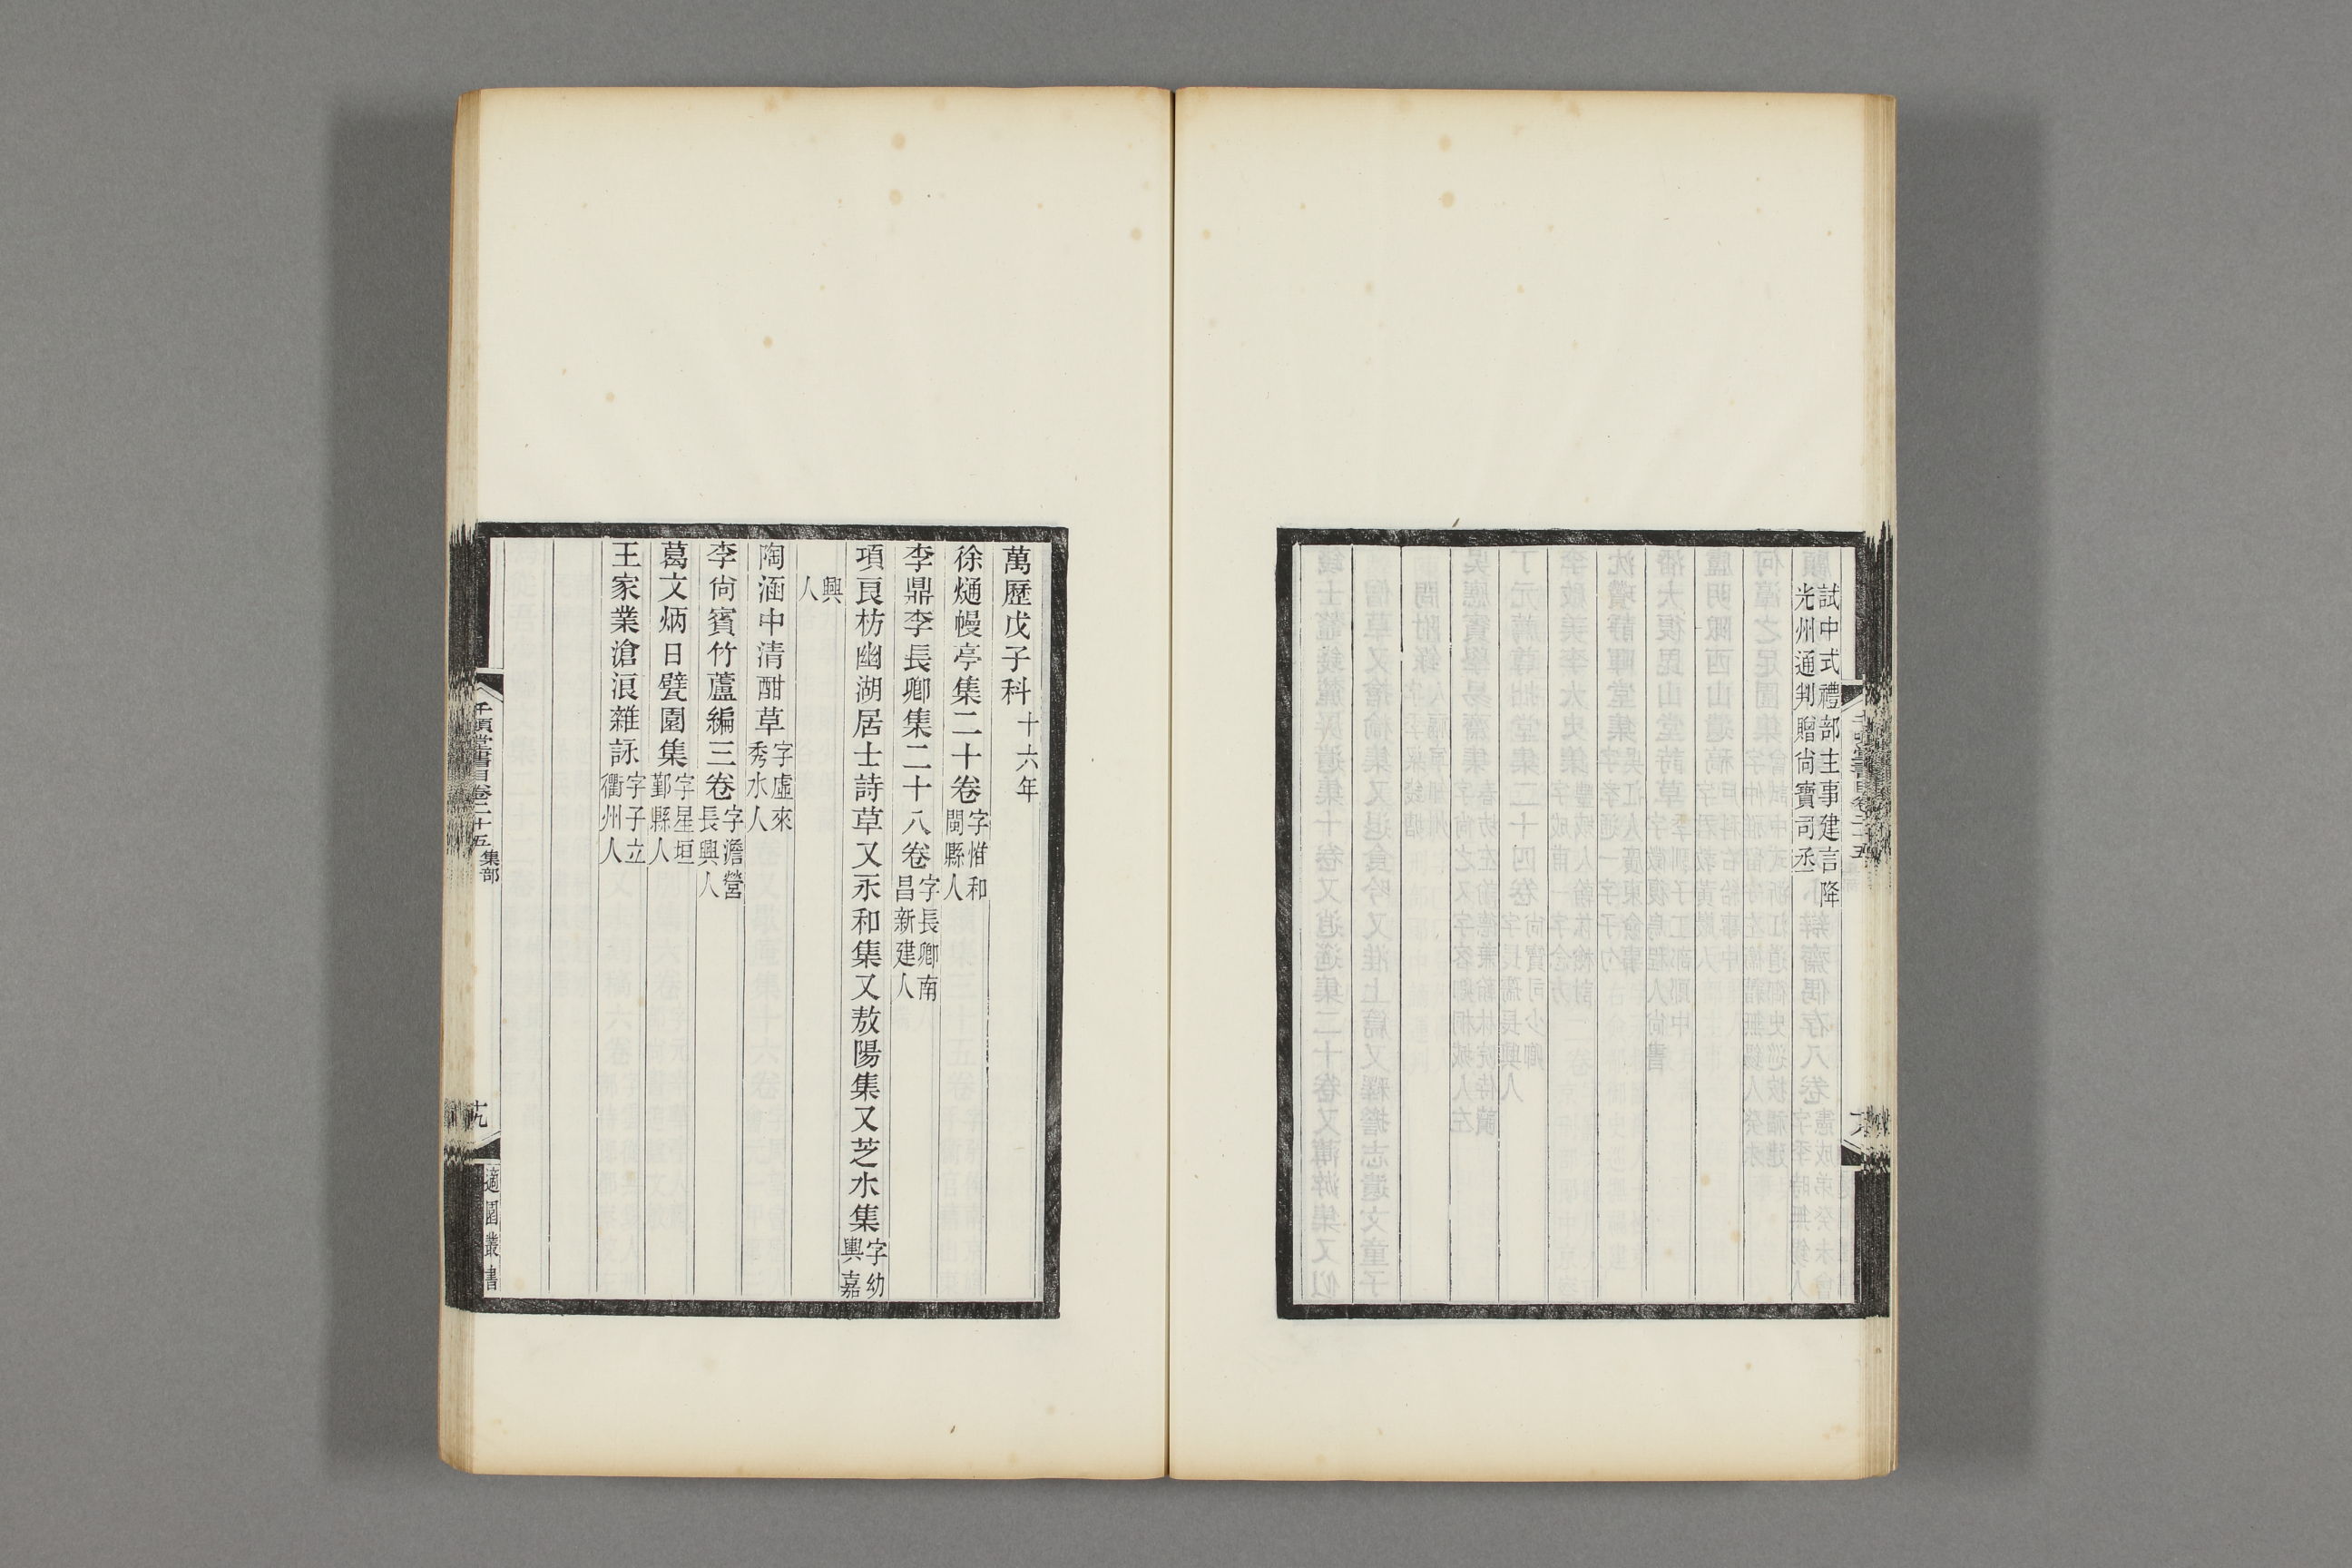 試中式禮部主事建言降
光州通判贈尚寶司丞
萬歷戊子科十六年
徐熥幔亭集二十卷字惟和閩縣人
李鼎李長卿集二十八卷字長卿南昌新建人
項良枋幽湖居士詩草又永和集又敖陽集又芝水集字幼輿嘉
興人
陶涵中清酣草字虛來秀水人
李尚賓竹蘆編三卷字澹營長興人
葛文炳日甓園集字星垣鄞縣人
王家業滄浪雜詠字子立衢州人
千頃堂書目卷二十五 集部
十九
適園叢書